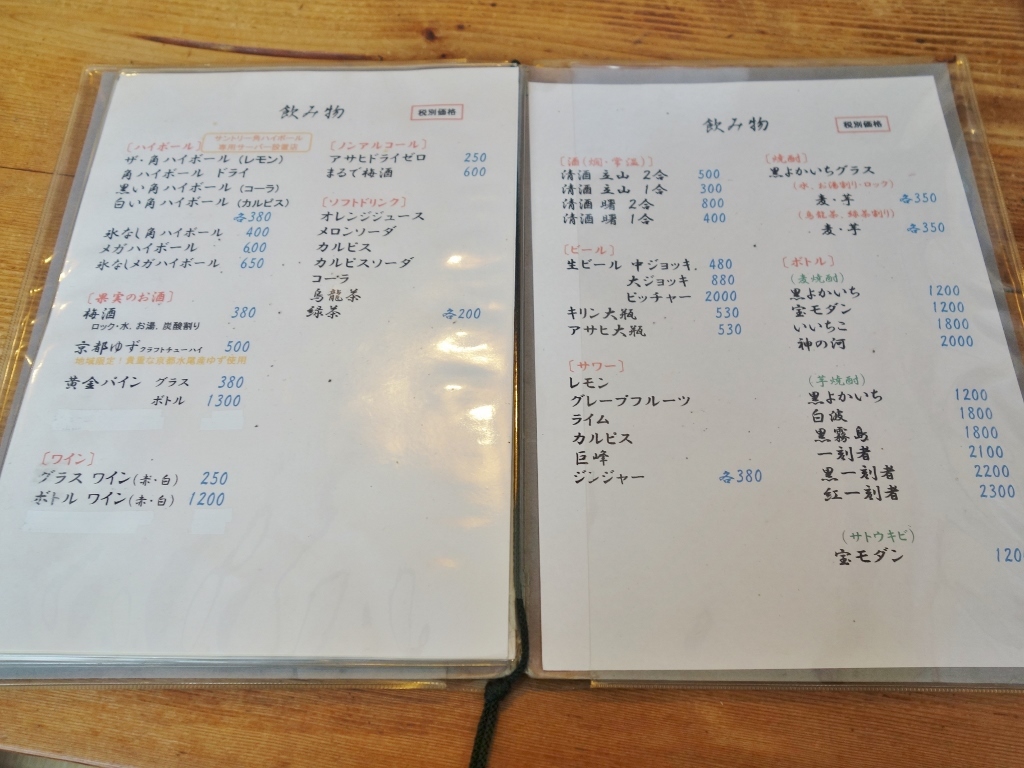 飲み物
税別価格
[ハイボール]
サントリー角ハイボール
専用サーバー設置店
ザ・角ハイボール (レモン)
角ハイボール ドライ
黒い角ハイボール (コーラ)
白い角ハイボール (カルピス)
各380
氷なし角ハイボール 400
メガハイボール 600
氷なしメガハイボール 650
[果実のお酒]
梅酒 380
ロック・水、お湯、炭酸割り
京都ゆずクラフトチューハイ 500
地域限定!貴重な京都水尾産ゆず使用
黄金パイン グラス 380
ボトル 1300
[ワイン]
グラス ワイン(赤・白) 250
ボトル ワイン(赤・白) 1200
[ノンアルコール]
アサヒドライゼロ 250
まるで梅酒 600
[ソフトドリンク]
オレンジジュース
メロンソーダ
カルピス
カルピスソーダ
コーラ
烏龍茶
緑茶 各200
飲み物
税別価格
[酒(燗・常温)]
清酒 立山 2合 500
清酒 立山 1合 300
清酒 曙 2合 800
清酒 曙 1合 400
[ビール]
生ビール 中ジョッキ 480
大ジョッキ 880
ピッチャー 2000
キリン大瓶 530
アサヒ大瓶 530
[サワー]
レモン
グレープフルーツ
ライム
カルピス
巨峰
ジンジャー 各380
[焼酎]
黒よかいちグラス
(水、お湯割り・ロック)
麦・芋 各350
(烏龍茶、緑茶割り)
麦・芋 各350
[ボトル]
(麦焼酎)
黒よかいち 1200
宝モダン 1200
いいちこ 1800
神の河 2000
(芋焼酎)
黒よかいち 1200
白波 1800
黒霧島 1800
一刻者 2100
黒一刻者 2200
紅一刻者 2300
(サトウキビ)
宝モダン 120